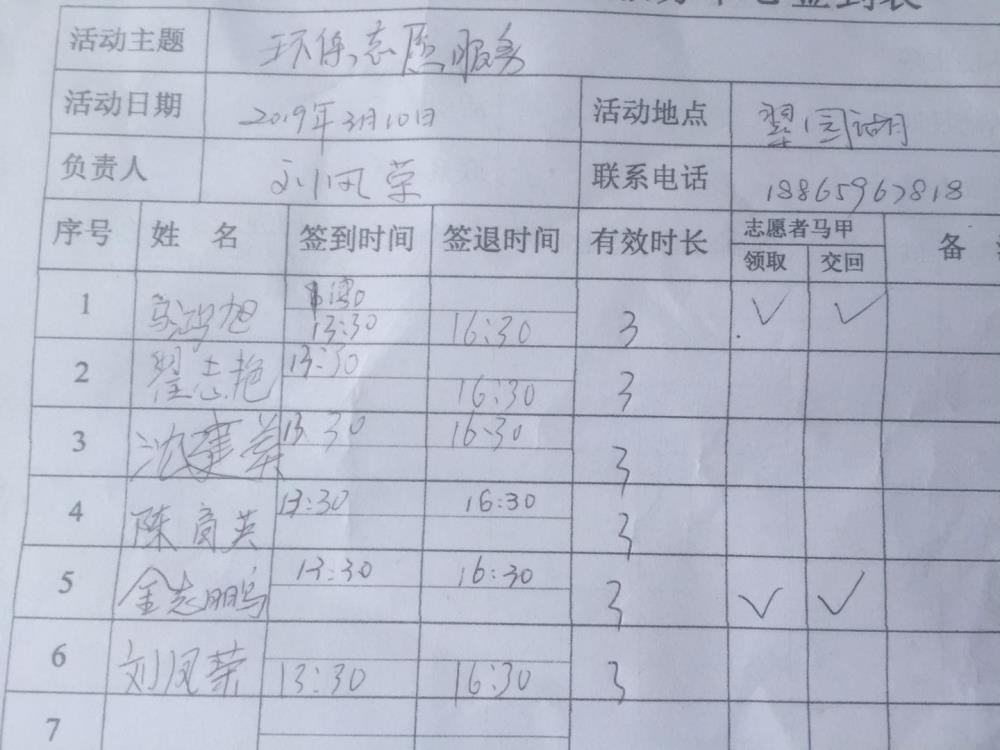 签到表
活动主题 环保志愿服务
活动日期 2019年3月10日 活动地点 翠园湖
负责人 刘风荣 联系电话 18865967818
序号 姓 名 签到时间 签退时间 有效时长 志愿者马甲 备
领取 交回
1 13:30 16:30 3 ✓ ✓
2 翟志艳 13:30 16:30 3
3 沈建英 13:30 16:30 3
4 陈育英 13:30 16:30 3
5 金志鹏 13:30 16:30 3 ✓ ✓
6 刘风荣 13:30 16:30 3
7